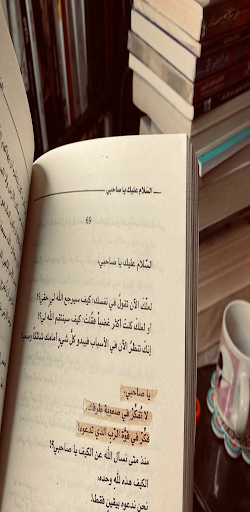 السّلام عليك يا صاحبي
69
السّلام عليك يا صاحبي،
لعلّكَ الآن تقول في نفسك: كيف سيرجع الله لي حقي؟!
أو لعلك كنتَ أكثر غضباً فقلتَ: كيف سينتقم الله لي؟!
إنك تنظرُ الآن في الأسباب فيبدو كلّ شيءٍ أمامك شائكاً وصعباً
يا صاحبي،
لا تُفكّر في صعوبة ظرفكَ،
فكّرْ في قوّة الرّب الذي تدعوه!
منذ متى نسأل الله عن الكيف يا صاحبي؟!
الكيف هذه لله وحده،
نحن ندعوه بيقين فقط،